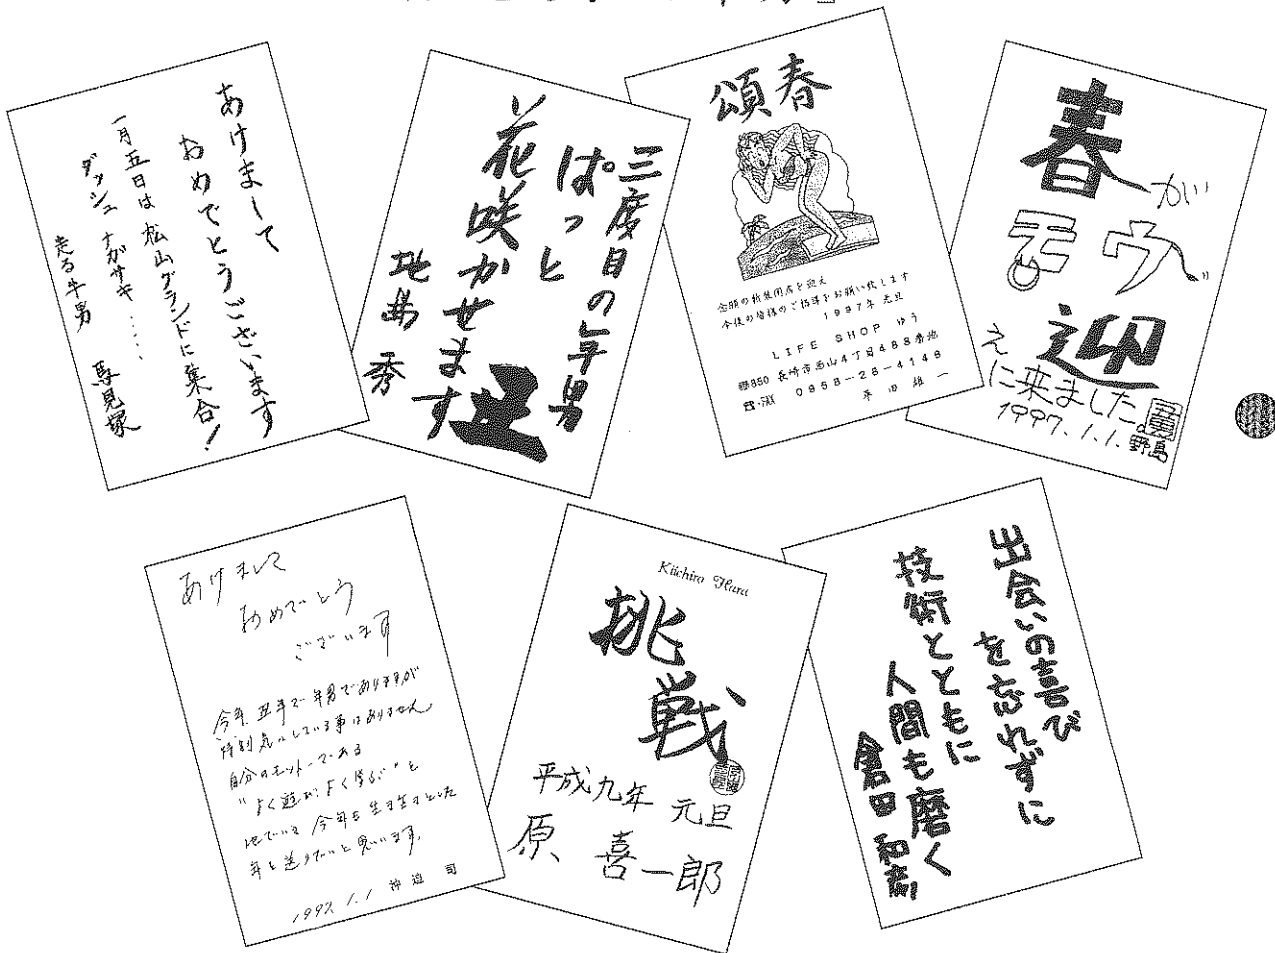 あけまして
おめでとうございます
一月五日は松山グランドに集合!
ダッシュ ナガサキ……
走る牛男 馬見塚
三度目の年男
ぱっと
花咲かせます
丑
秀
頌春
念願の新装開店を迎え
今後の皆様のご指導をお願い致します
1997年 元旦
LIFE SHOP ゆう
〒850 長崎市西山4丁目488番地
0958-26-4148
平田 雄一
春が
モウ
迎
えに来ました。
1997.1.1. 野島
あけまして
おめでとう
ございます
今年、丑年で年男でありますが
特別気にしている事はありません
自分のモットーである
"よく遊び、よく学ぶ"と
今年も生き生きとした
年を送りたいと思います。
1997.1.1 神迫 司
Kiichiro Hara
挑戦
平成九年 元旦
原 喜一郎
出会いの喜び
を忘れずに
技術とともに
人間も磨く
倉田